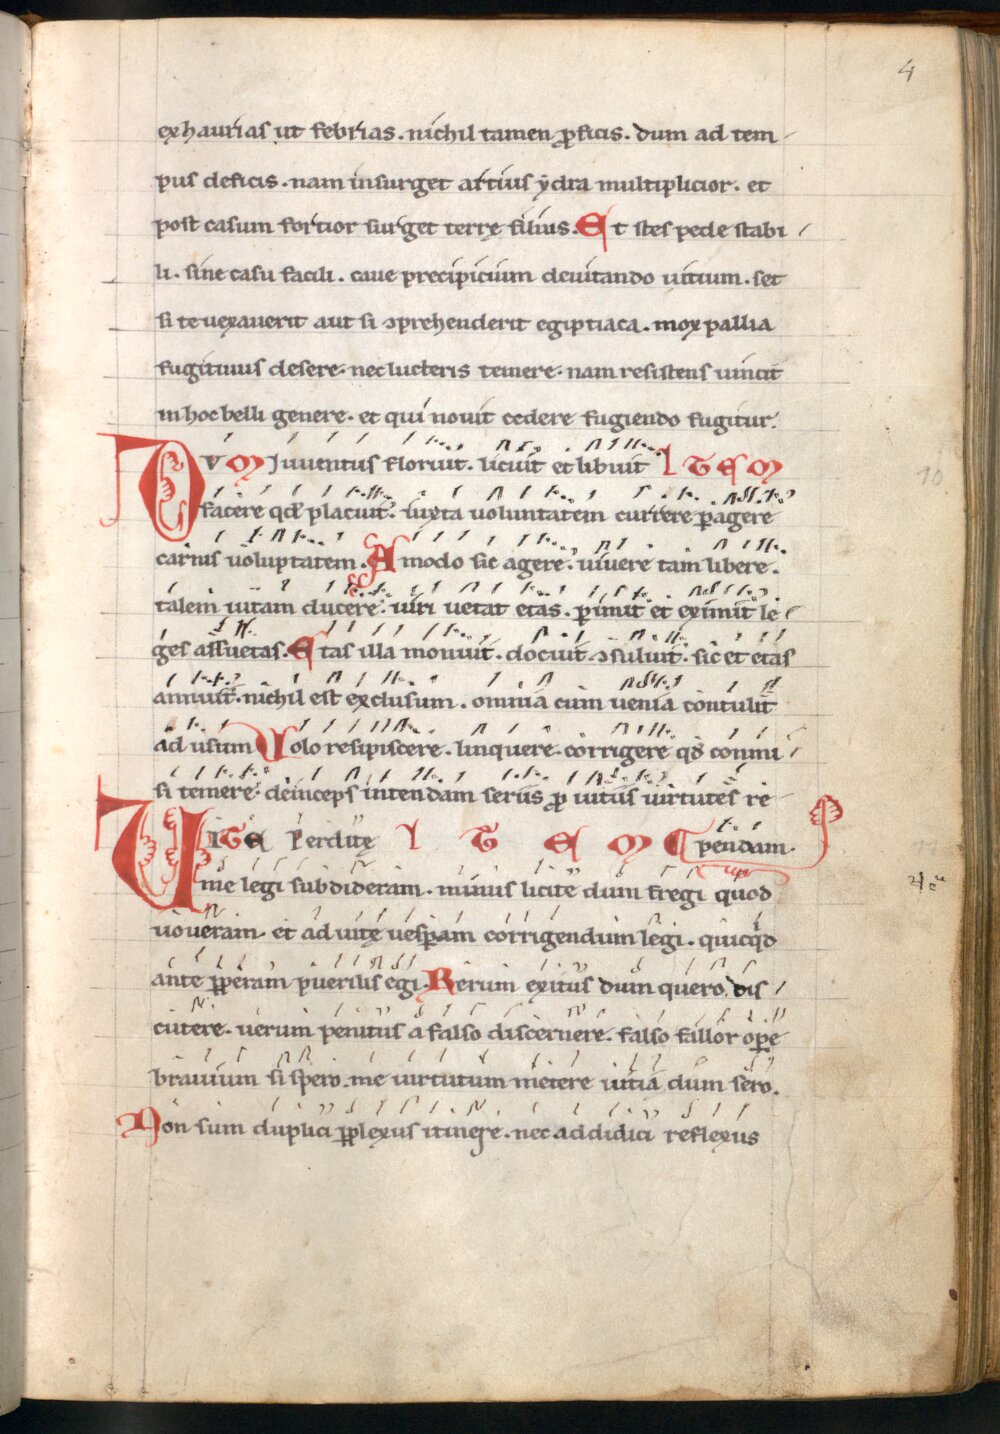 4
exhaurias ut febrias. nichil tamen ꝓficis. dum ad tem
pus deficis. nam insurget artius ẏdra multiplicior. et
post casum fortior surget terrę filius. Et stes pede stabi
li. sine casu facili. caue precipicium deuitando uitium. set
si te uexauerit aut si ɔprehenderit egiptiaca. mox pallia
fugitiuus desere. nec lucteris temere. nam resistens uincit
in hoc belli genere. et qui nouit cedere fugiendo fugitur.
DVM Iuuentus floruit. licuit et libuit ITEM
facere qd̄ placuit. iuxta uoluntatem currere ꝑagere
carnis uoluptatem. Amodo sic agere. uiuere tam libere.
talem uitam ducere. uiri uetat etas. ꝑimit et eximit le
ges assuetas. Etas illa monuit. docuit. ɔsuluit. sic et etas
annuit. nichil est exclusum. omnia cum uenia contulit
ad usum Volo resipiscere. linquere. corrigere qd̄ commi
si temere. deinceps intendam seriis ꝓ uitiis uirtutes re
VITE Perditę ITEM pendam.
me legi subdideram. minus licite dum fregi quod
uoueram. et ad uitę uesꝑam corrigendum legi. quicqd̄
ante ꝑꝑeram puerilis egi. Rerum exitus dum quero dis
cutere. uerum penitus a falso discernere. falso fallor oꝑe
brauium si spero. me uirtutum metere uitia dum sero.
Non sum duplici ꝑplexus itinere. nec addidici reflexus